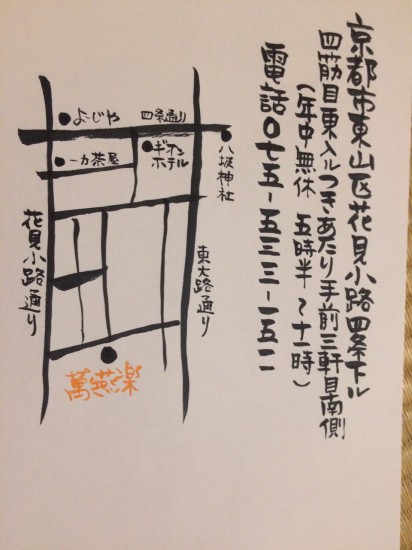 京都市東山区花見小路四条下ル
四筋目東入ルつきあたり手前三軒目南側
(年中無休 五時半〜十一時)
電話〇七五-五三三-一五一一
よーじや
四条通り
一力茶屋
ギオン
ホテル
八坂神社
花見小路通り
東大路通り
萬燕楽